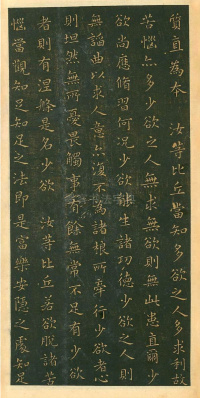 質直為本　汝等比丘當知多欲之人多求利故
苦惱亦多少欲之人無求無欲則無此患直爾少
欲尚應修習何況少欲能生諸功德少欲之人則
無諂曲以求人意亦復不為諸根所牽行少欲者心
則坦然無所憂畏觸事有餘無常不足有少欲
者則有涅槃是名少欲　汝等比丘若欲脫諸苦
惱當觀知足知足之法即是富樂安隱之處知足